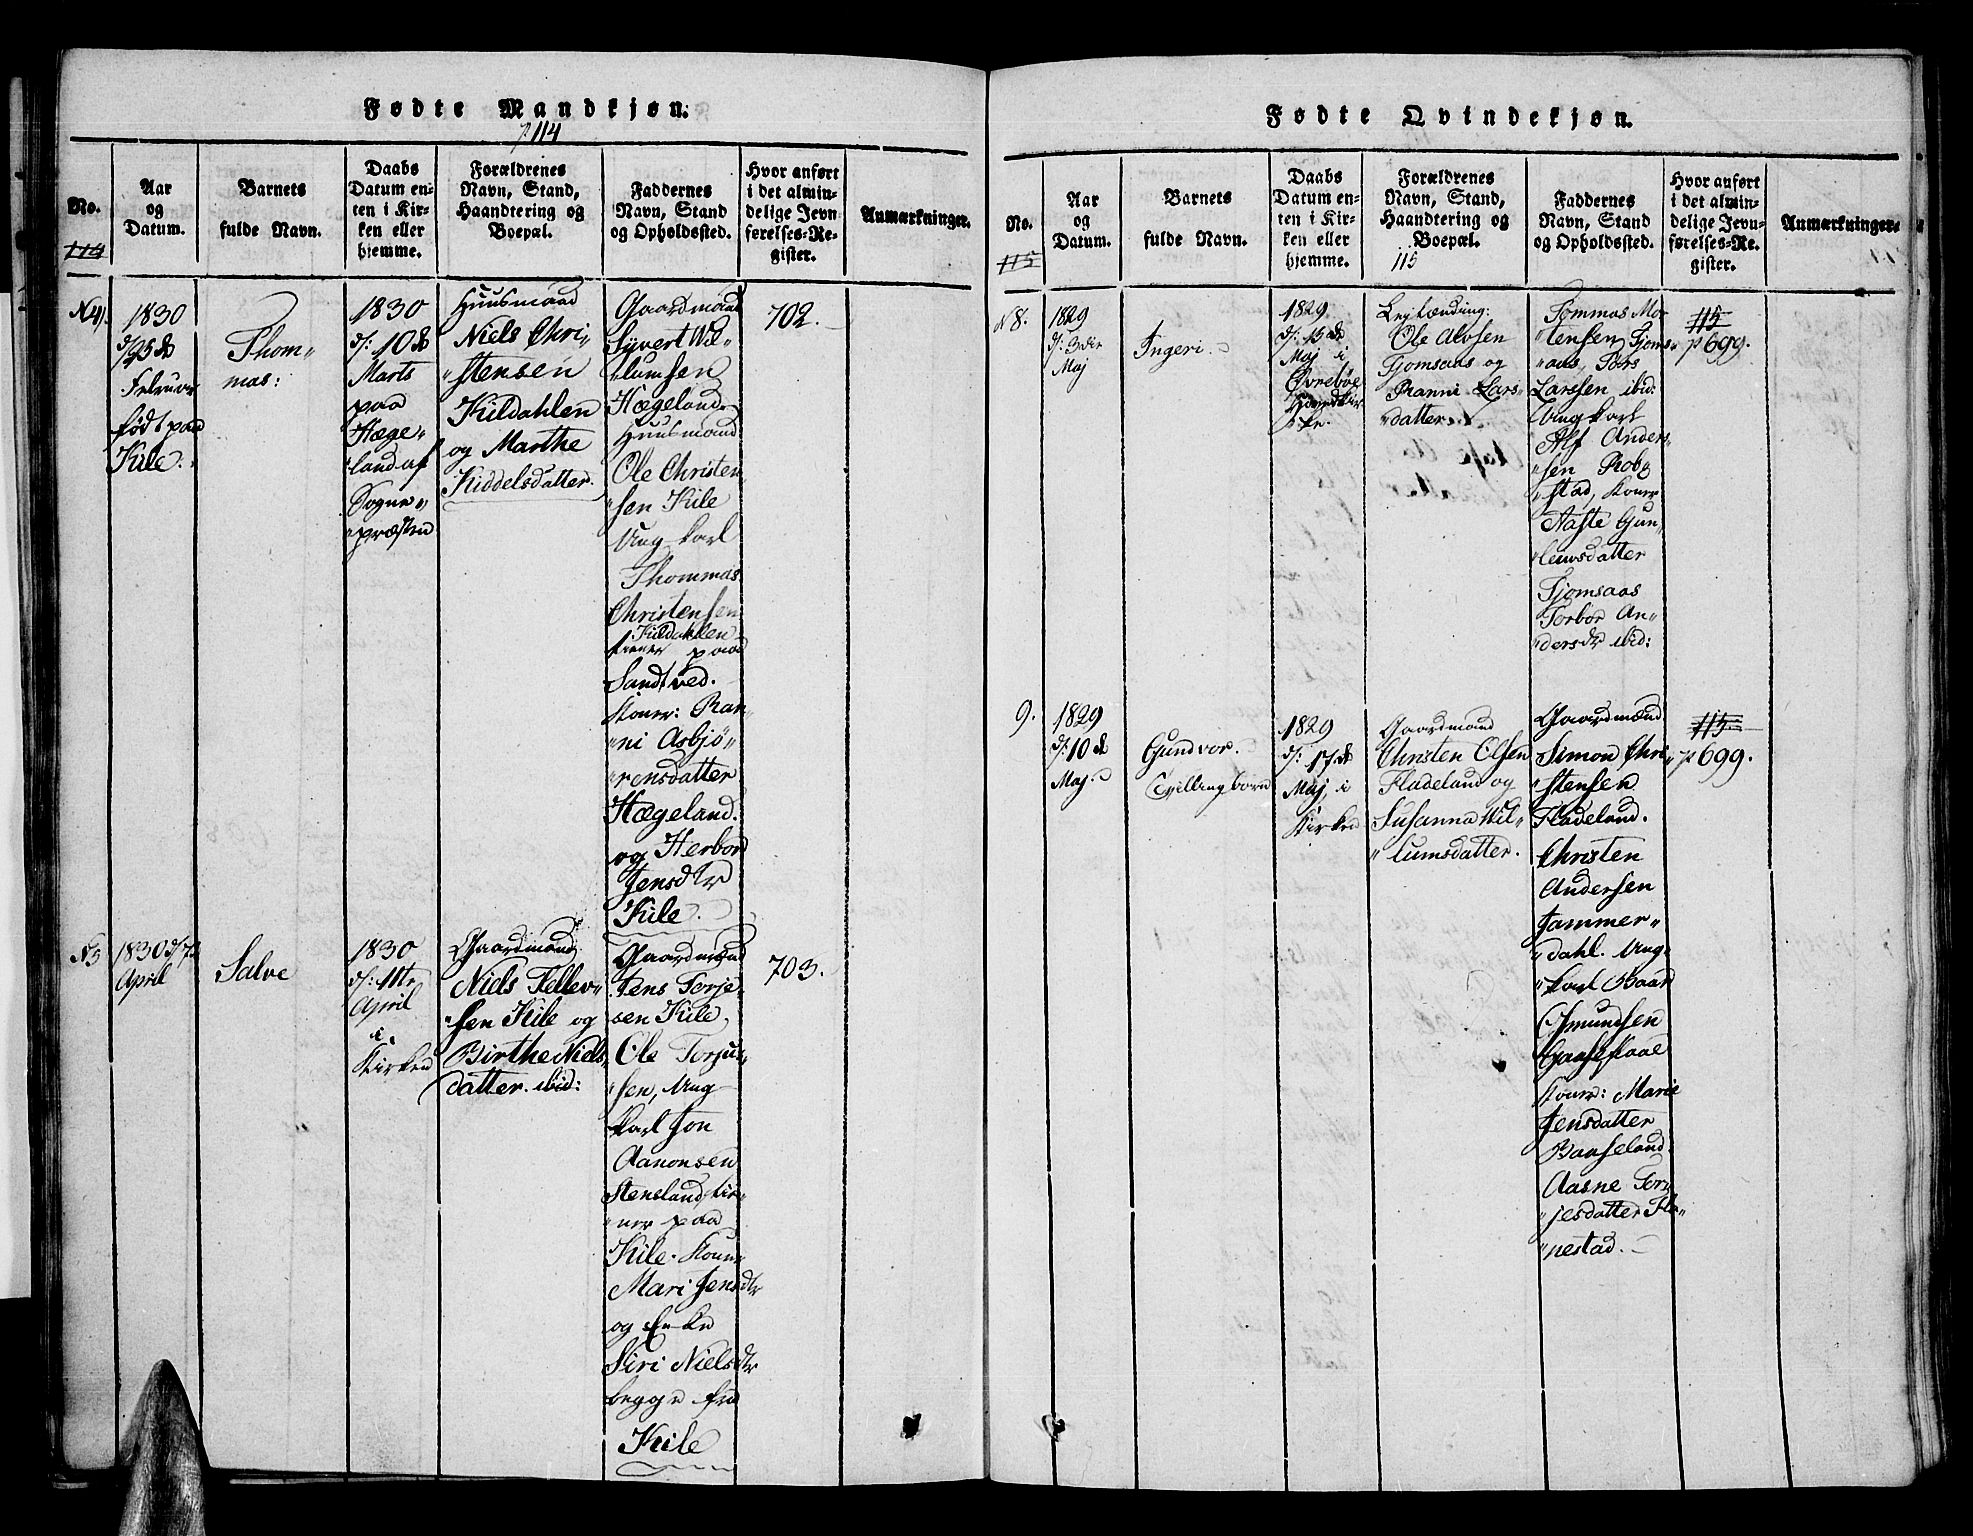 Fødte Mandkjøn.
p 114
No.
114
Aar
og
Datum.
Barnets
fulde Navn.
Daabs
Datum en-
ten i Kir-
ken eller
hjemme.
Forældrenes
Navn, Stand,
Haandtering og
Boepæl.
Faddernes
Navn, Stand
og Opholdssted.
Hvor anført
i det almin-
delige Jevn
førelses-Re-
gister.
Anmærkninger.
N 4).
1830
d/25de
Februar
født paa
Kile.
Thom"
mas:
1830
d: 10de
Marts
paa
Hæge"
land af
Sogne"
"præsten
Huusmand
Niels Chri"
"stensen
Kildahlen
og Marthe
Kiddelsdatter.
Gaardmand
Syvert Wil"
"lumsen
Hægeland.
Huusmand
Ole Christen
"sen Kile
Ung karl
Thommas
Christensen
Kildahlen
tiener paa
Sandtved.
Koner: Ran"
"ni Asbjø"
"rensdatter
Hægeland.
og Herbor
Jensdtr
Kile.
702.
N 5
1830 d/7de
April
Salve
1830
d: 11te
April
i
Kirken
Gaardmand
Niels Tellev"
"sen Kile og
Birthe Niels
datter ibid:
Gaardmænd
Jens Torje"
sen Kile,
Ole Torju"
"sen, Ung
karl Jon
Aanonsen
Stensland, tie"
"ner paa
Kile. Koner
Mari Jensdtr
og Enke
Siri Nielsdtr
begge fra
Kile
703.
Fødte Qvindekjøn.
No.
115
Aar
og
Datum.
Barnets
fulde Navn.
Daabs
Datum en-
ten i Kir-
ken eller
hjemme.
Forældrenes
Navn, Stand,
Haandtering og
Boepæl.
115
Faddernes
Navn, Stand
og Opholdssted.
Hvor anført
i det almin-
delige Jevn-
førelses-Re-
gister.
Anmærkninger.
N 8.
1829
d: 3die
Maj
Ingeri.
1829
d: 15de
Maj i
Øvrebøe
Hovedkir
ke.
Lejlænding:
Ole Alvsen
Tjomsaas og
Ranni Lars"
"datter
Tommas Mor
"tensen Tjoms"
"aas, Tars
Larssen ibid:
Ung karl
Alf Anders"
"sen Rob
"stad, Koner
Aaste Gun"
"leuvsdatter
Tjomsaas
Torbor An"
"dersdr ibid:
115
p 699.
9.
1829
d: 10de
Maj.
Gundvor.
Tvillingbørn
1829
d: 17de
Maj i
Kirken
Gaardmand
Christen Olsen
Fladeland og
Susanna Wil"
"lumsdatter.
Gaardmænd
Simon Chri"
"stensen
Fladeland.
Christen
Andersen
Jammer"
"dahl. Ung"
"karl Baar
Osmundsen
Koner: Marie
Jensdatter
Aasne Torj"
"jesdatter Flo"
"nestad.
115.
p 699.